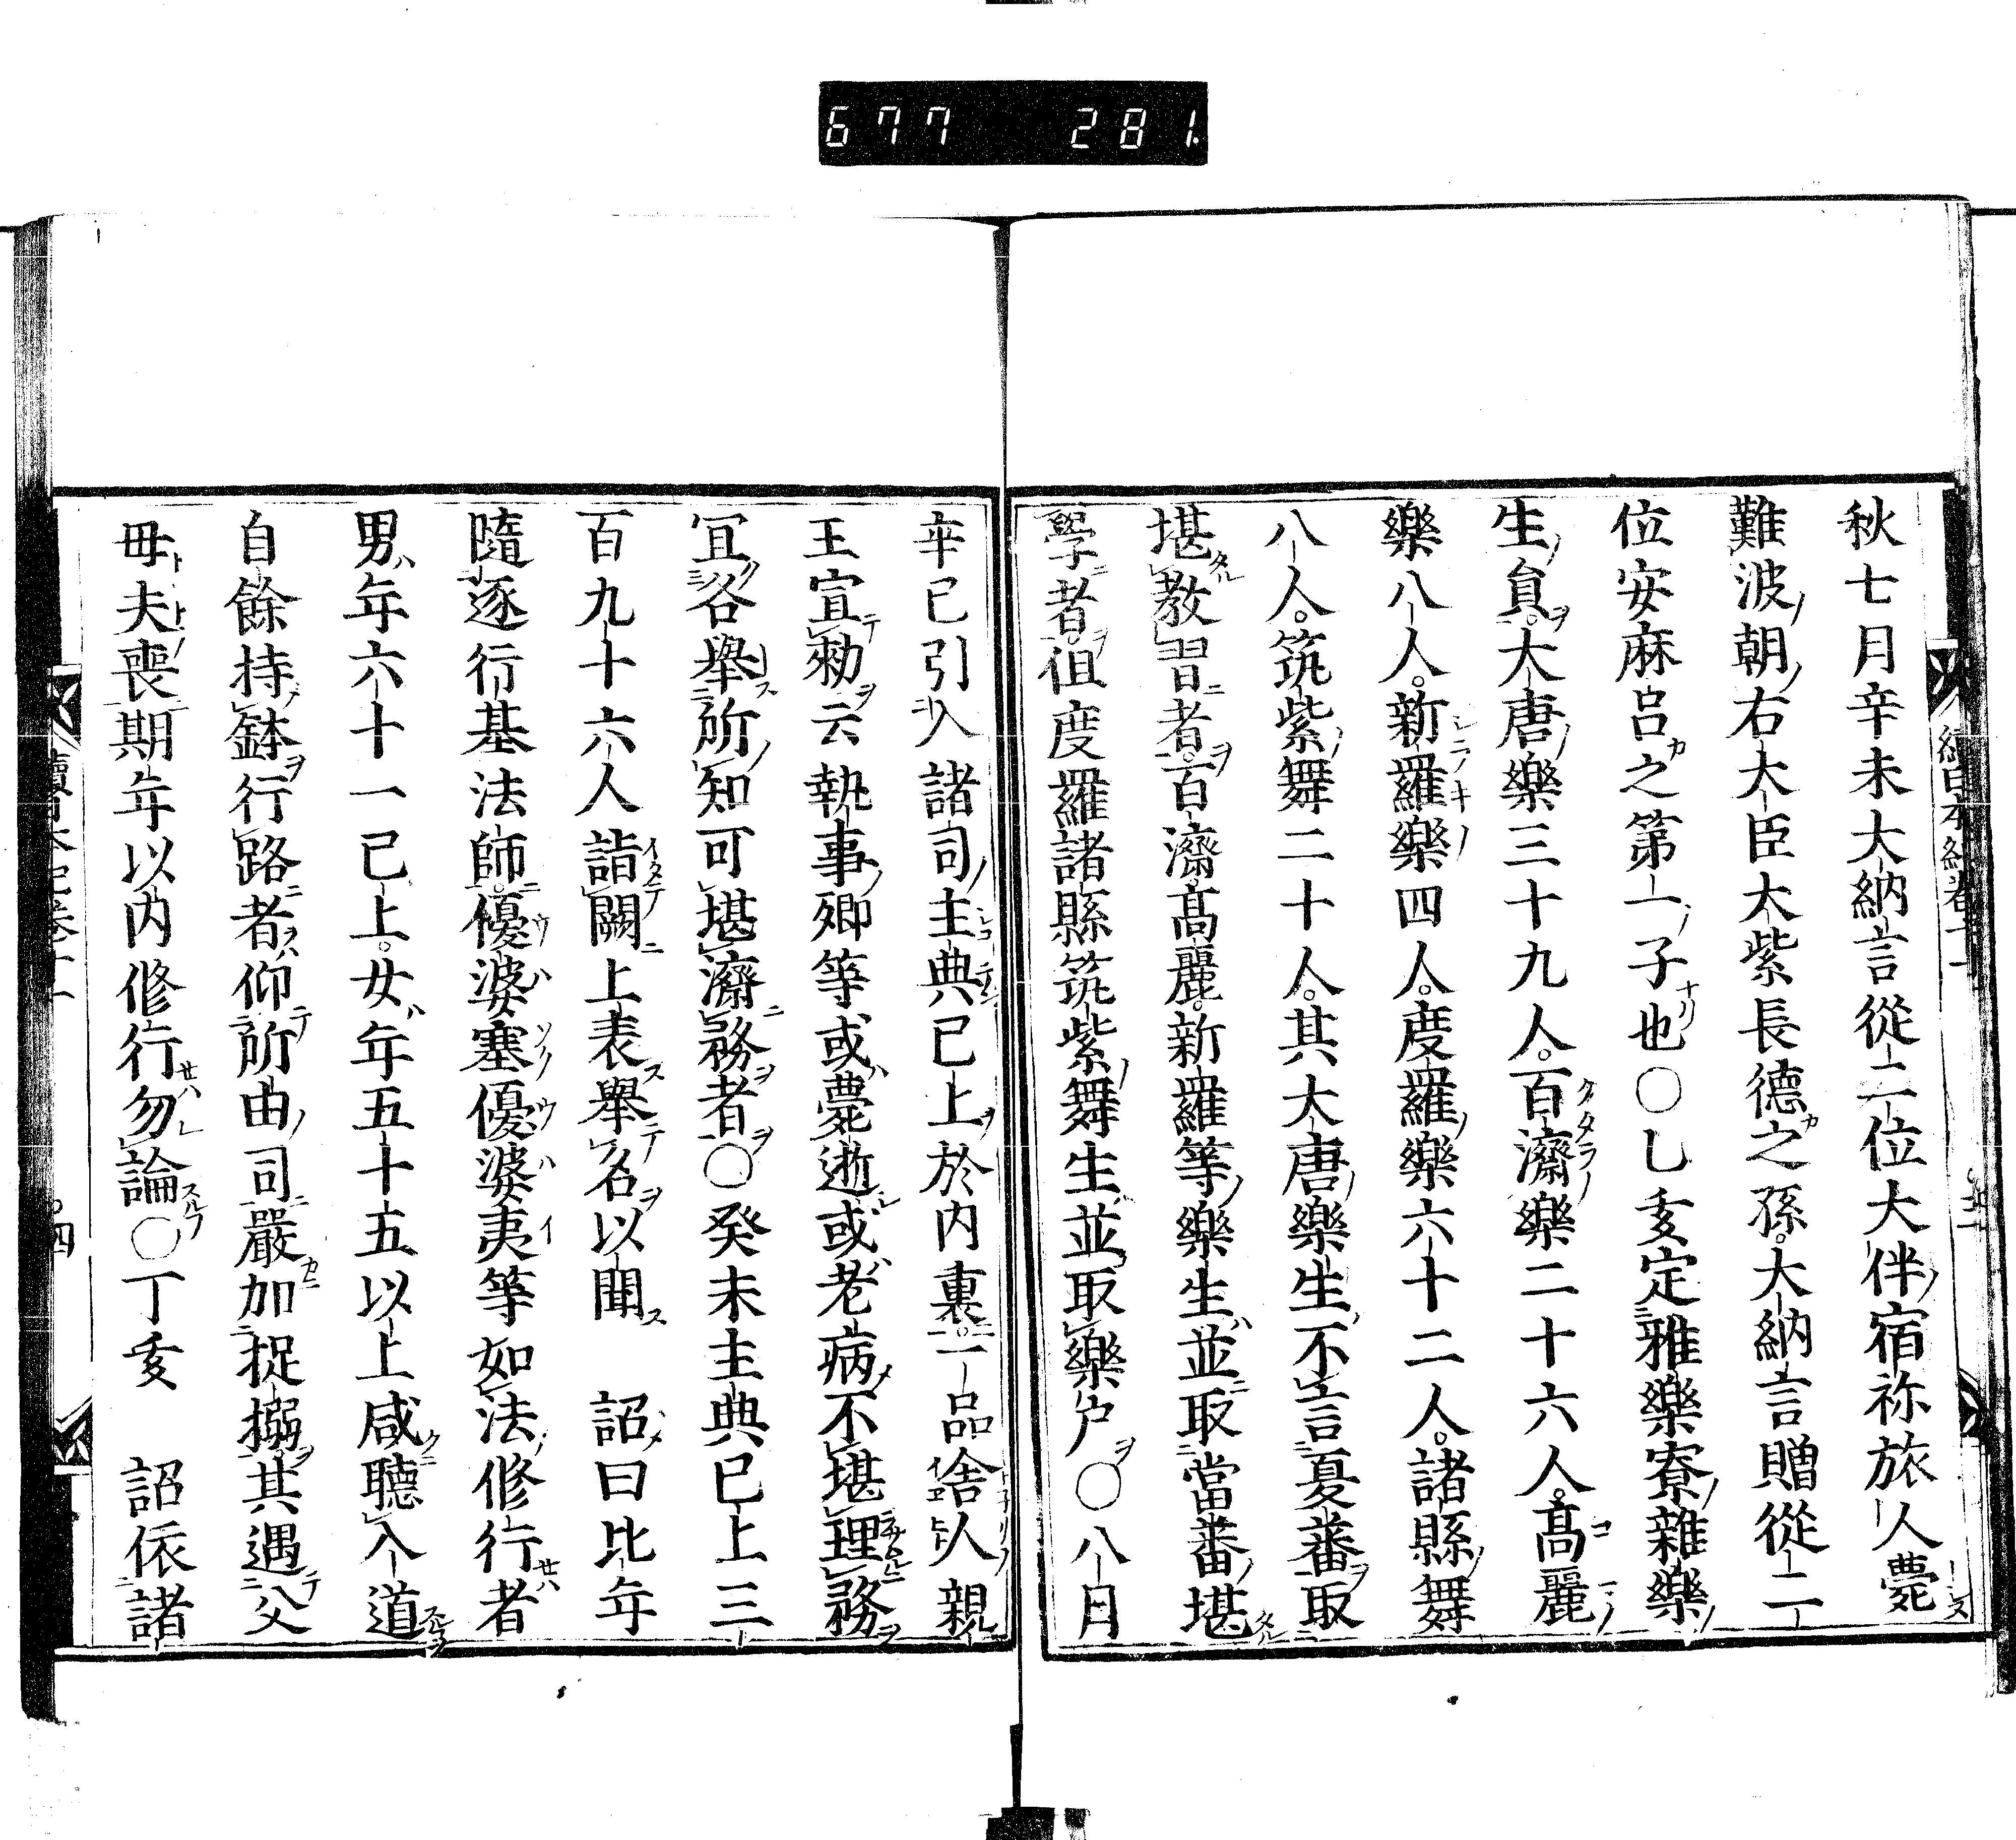 677 281
續日本紀卷十一
秋七月辛未大納言從二位大伴宿祢旅人薨
難波朝右大臣大紫長德之孫。大納言贈從二
位安麻呂之第一子也○乙亥定雅樂寮雜樂
生員。大唐樂三十九人。百濟樂二十六人。髙麗
樂八人。新羅樂四人。度羅樂六十二人。諸縣舞
八人。筑紫舞二十人。其大唐樂生不言夏蕃取
堪教習者。百濟。髙麗。新羅等樂生並取當蕃堪
學者。但度羅諸縣筑紫舞生並取樂戶○八月
辛巳引入諸司主典已上於内裏。一品舍人親
王宣勅云執事卿等或薨逝或老病不堪理務
冝各舉所知可堪濟務者○癸未主典已上三
百九十六人詣闕上表舉名以聞　詔曰比年
隨逐行基法師。優婆塞優婆夷等如法修行者
男年六十一已上。女年五十五以上咸聽入道
自餘持鉢行路者仰所由司嚴加捉搦。其遇父
母夫喪期年以内修行勿論○丁亥　詔依諸
續日本紀卷十一
四